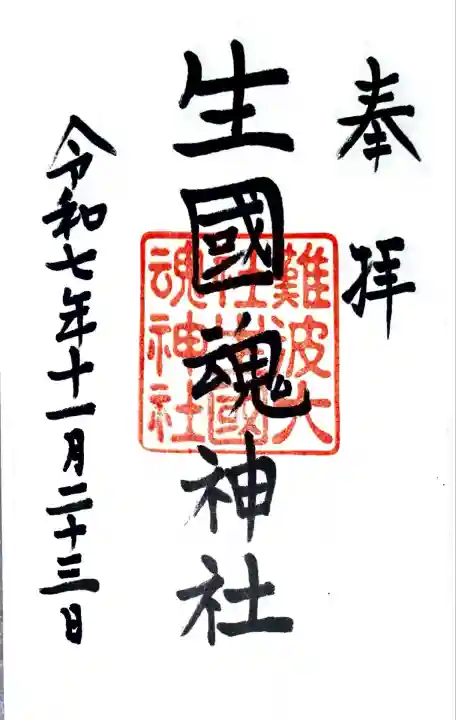 奉拝
生國魂神社
難波大
社生國
魂神社
令和七年十一月二十三日